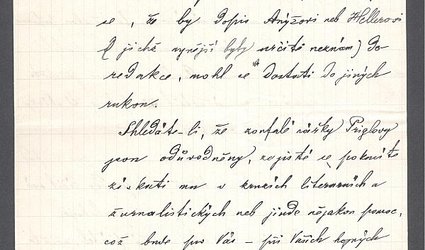 se, že by dopis Anýžovi neb Hellerovi
(jichž nynější byty určitě neznám) do
redakce, mohl se dostati do jiných
rukou.
Shledáte-li, že zoufalé nářky Piglovy
jsou odůvodněny, zajisté se pokusíte
získati mu v kruzích literárních a
žurnalistických neb jinde nějakou pomoc,
což bude pro Vás – při Vašich hojných